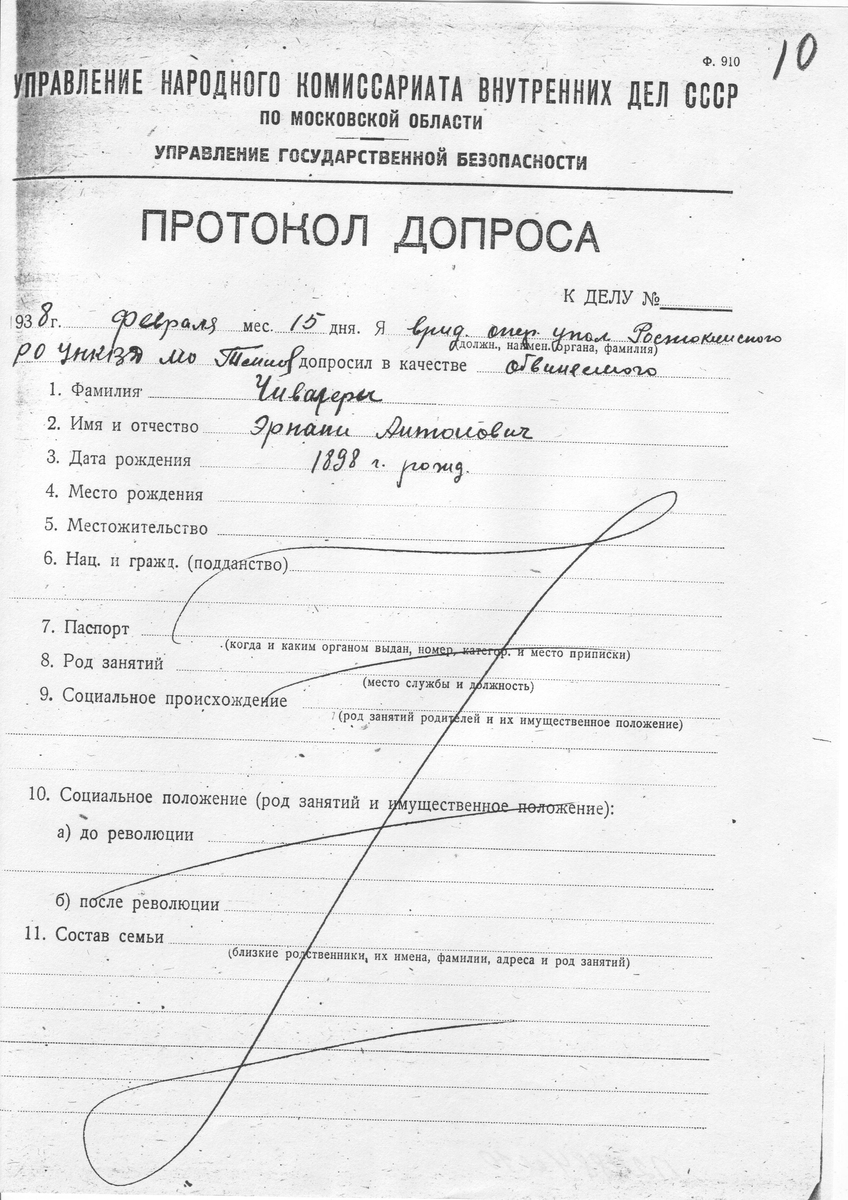 10
Ф. 910
УПРАВЛЕНИЕ НАРОДНОГО КОМИССАРИАТА ВНУТРЕННИХ ДЕЛ СССР
ПО МОСКОВСКОЙ ОБЛАСТИ
УПРАВЛЕНИЕ ГОСУДАРСТВЕННОЙ БЕЗОПАСНОСТИ
ПРОТОКОЛ ДОПРОСА
К ДЕЛУ №
1938 г. февраля мес. 15 дня. Я врид. опер. упол Ростокинского
(должн., наимен. органа, фамилия)
РО УНКВД МО допросил в качестве обвиняемого
1. Фамилия Чивалеры
2. Имя и отчество Эрнани Антонович
3. Дата рождения 1898 г. рожд.
4. Место рождения
5. Местожительство
6. Нац. и гражд. (подданство)
7. Паспорт
(когда и каким органом выдан, номер, категор. и место приписки)
8. Род занятий
(место службы и должность)
9. Социальное происхождение
(род занятий родителей и их имущественное положение)
10. Социальное положение (род занятий и имущественное положение):
а) до революции
б) после революции
11. Состав семьи
(близкие родственники, их имена, фамилии, адреса и род занятий)